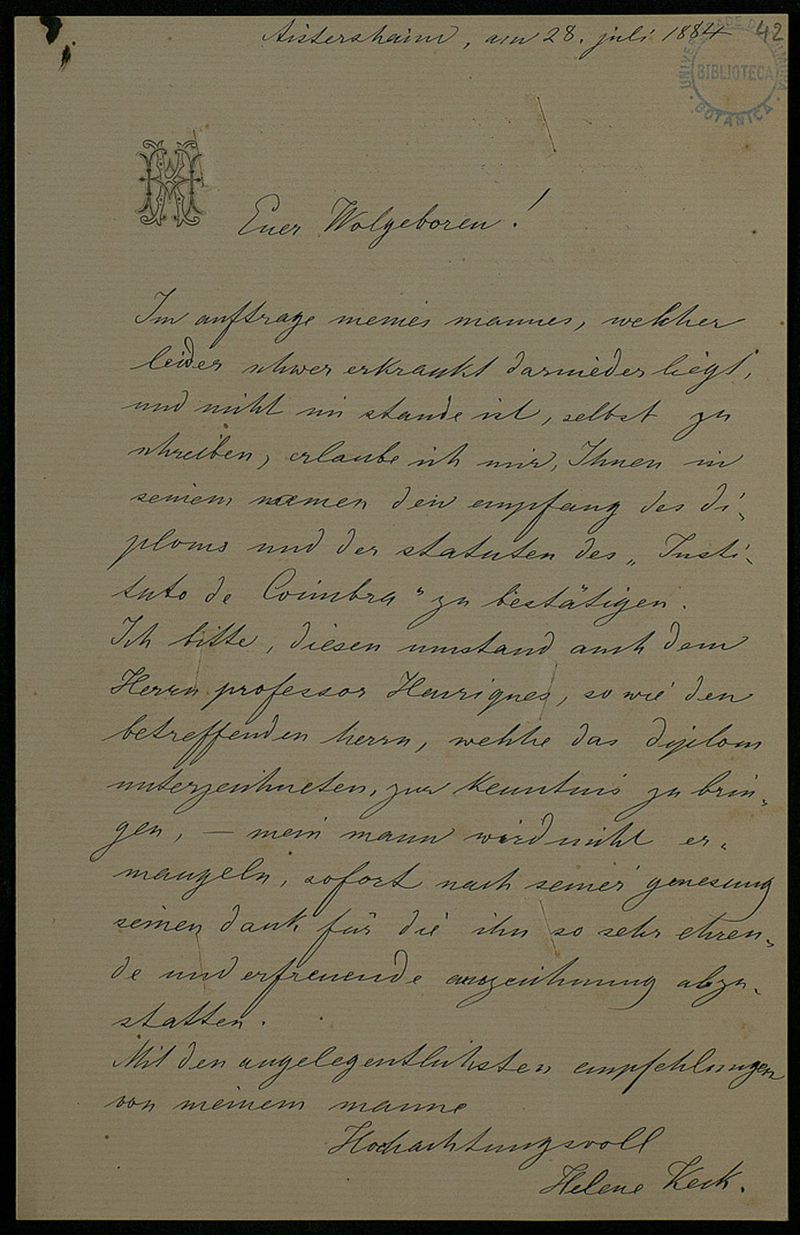 Aistershaim, am 28. juli 1884
42
UNIVERSIDADE DE COIMBRA
BIBLIOTECA
BOTANICA
Euer Wolgeboren!
Im auftrage meines mannes, welcher
leider schwer erkrankt darnieder liegt,
und nicht im stande ist, selbst zu
schreiben, erlaube ich mir, Ihnen in
seinem namen den empfang des di-
ploms und der statuten des „Insti-
tuto de Coimbra" zu bestätigen.
Ich bitte, diesen umstand auch dem
Herrn professor Henriques, so wie den
betreffenden herrn, welche das diplom
unterzeichneten, zur kenntnis zu brin-
gen, — mein mann wird nicht er-
mangeln, sofort nach seiner genesung
seinen dank für die ihn so sehr ehren-
de und erfreuende auszeichnung abzu-
statten.
Mit den angelegentlichsten empfehlungen
von meinem manne
Hochachtungsvoll
Helene Keck.